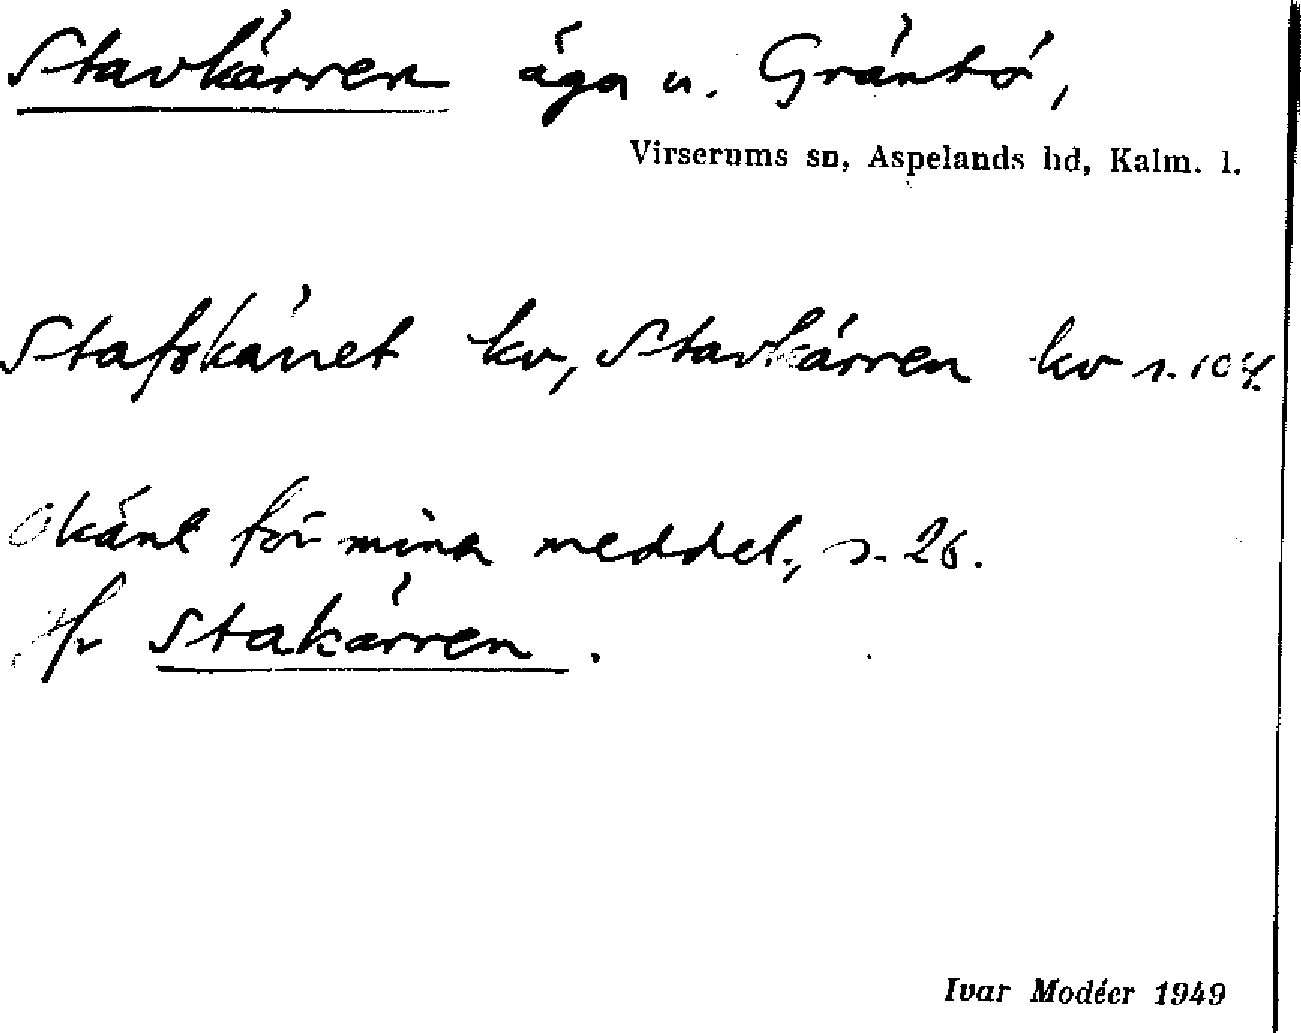 Stavkärren äga u. Gräntö,
Virserums sn, Aspelands hd, Kalm. l.
Stafskärret kv, Stavkärren kv s. 104.
Okänt för mina meddel., s. 26.
Jfr Stakärren.
Ivar Modéer 1949